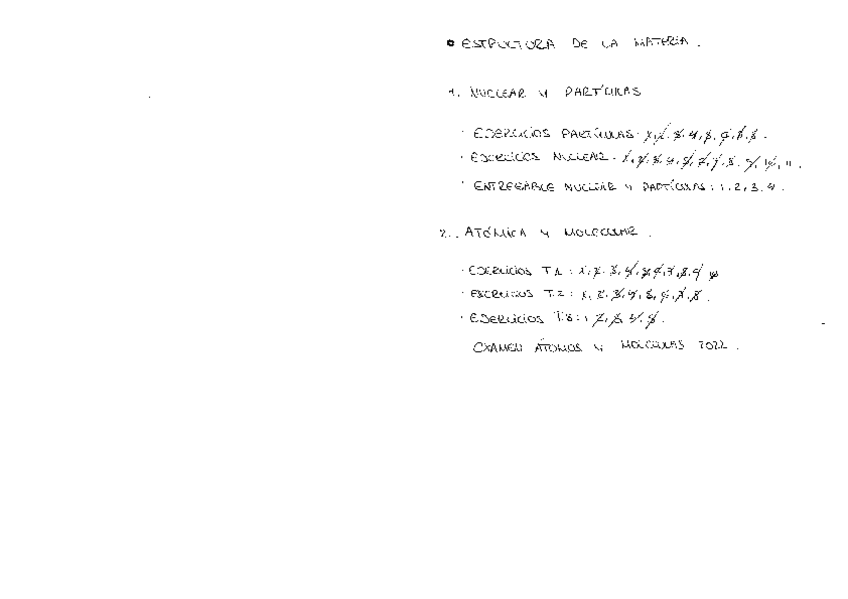 • ESTRUCTURA DE LA MATERIA.
1. NUCLEAR Y PARTÍCULAS
· EJERCICIOS PARTÍCULAS: 1, 2, 3, 4, 5, 6, 7, 8.
· EJERCICIOS NUCLEAR: 1, 2, 3, 4, 5, 6, 7, 8, 9, 10, 11.
· ENTREGABLE NUCLEAR Y PARTÍCULAS: 1, 2, 3, 4.
2. ATÓMICA Y MOLECULAR.
· EJERCICIOS T.1: 1, 2, 3, 4, 5, 6, 7, 8, 9, 10
· EJERCICIOS T.2: 1, 2, 3, 4, 5, 6, 7, 8.
· EJERCICIOS T.3: 1, 2, 3, 4, 5.
EXAMEN ÁTOMOS Y MOLÉCULAS 2022.